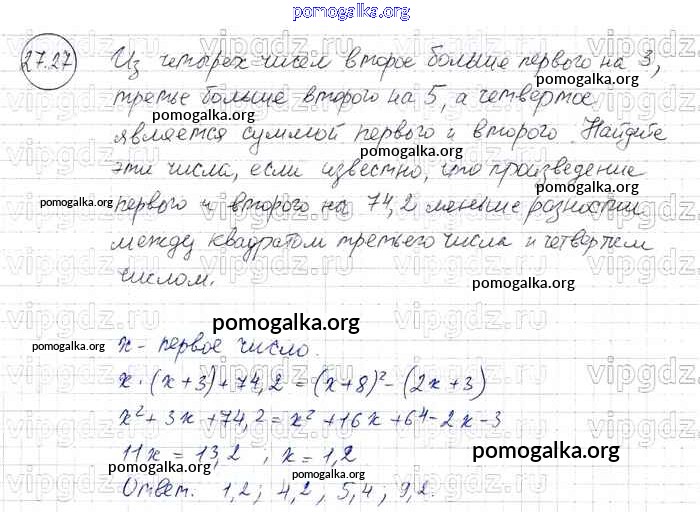 pomogalka.org
27.27 Из четырех чисел второе больше первого на 3,
pomogalka.org
третье больше второго на 5, а четвертое
pomogalka.org
является суммой первого и второго. Найдите
эти числа, если известно, что произведение
pomogalka.org
pomogalka.org
первого и второго на 74,2 меньше разности
между квадратом третьего числа и четвертым
числом.
pomogalka.org
pomogalka.org
pomogalka.org
x - первое число.
pomogalka.org
x·(x+3)+74,2=(x+8)²-(2x+3)
x²+3x+74,2=x²+16x+64-2x-3
pomogalka.org
11x=13,2; x=1,2
pomogalka.org
Ответ. 1,2; 4,2; 5,4; 9,2.
pomogalka.org
vipgdz.ru